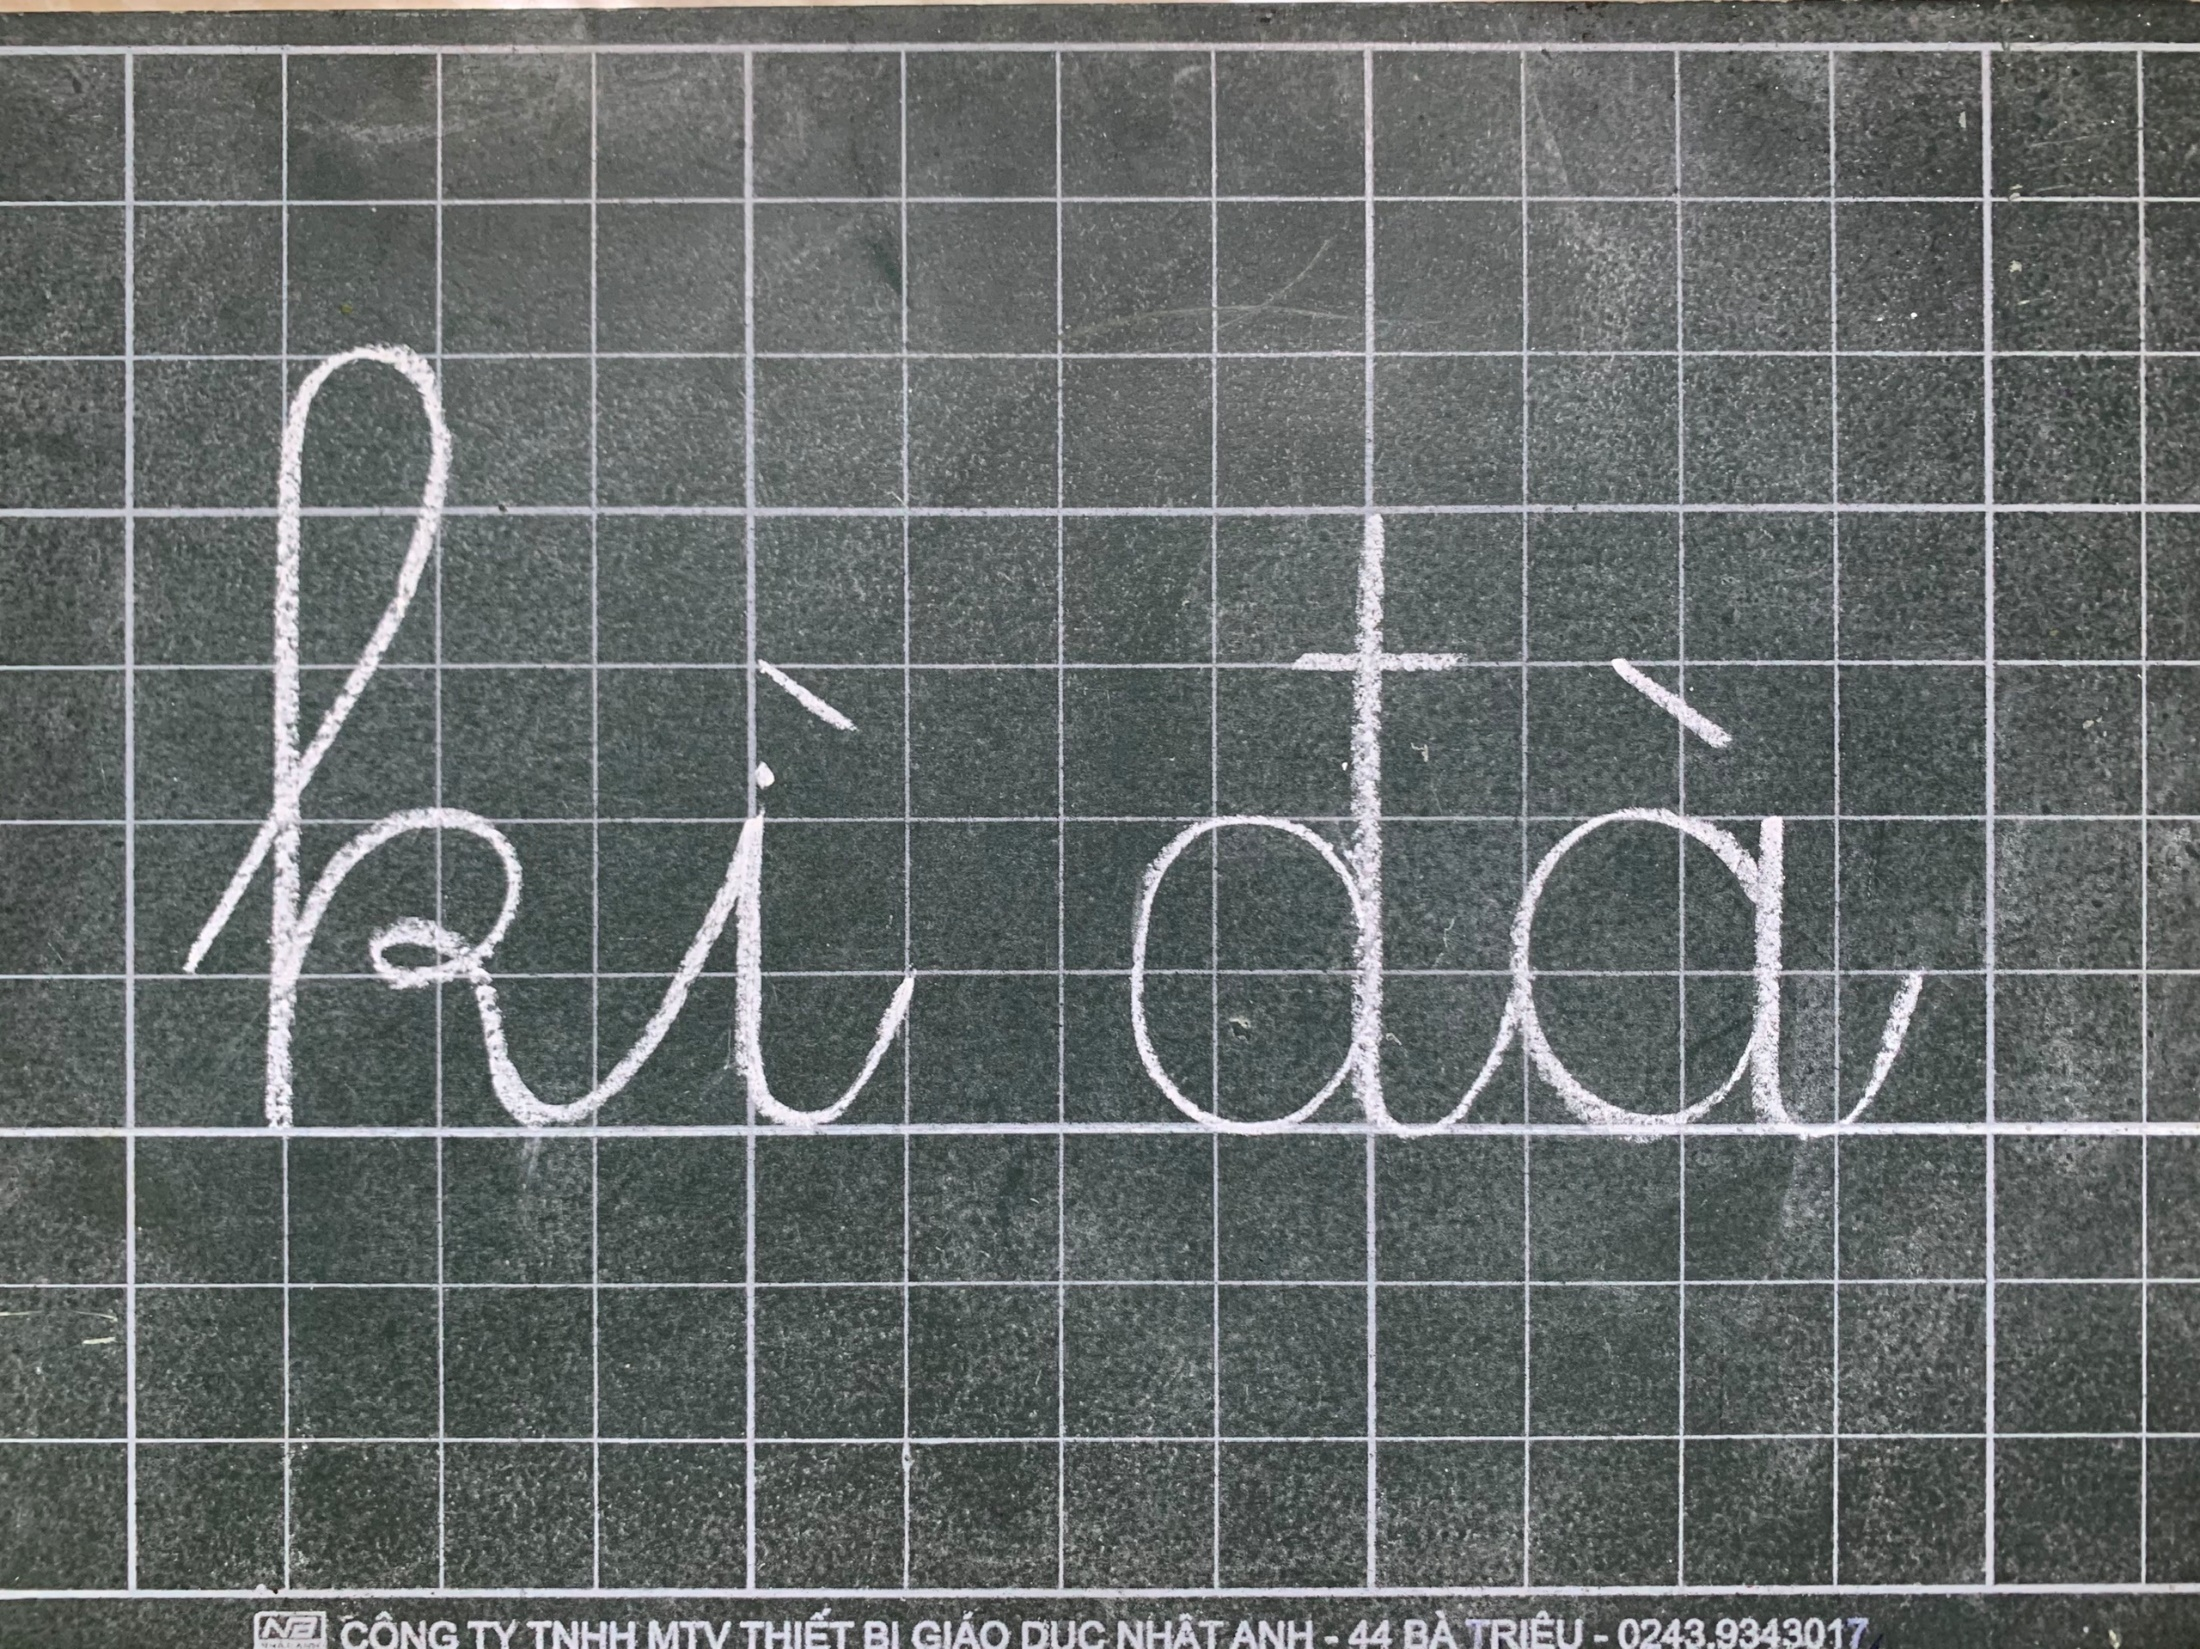 kì đà
NA CÔNG TY TNHH MTV THIẾT BỊ GIÁO DỤC NHẬT ANH - 44 BÀ TRIỆU - 0243.9343017